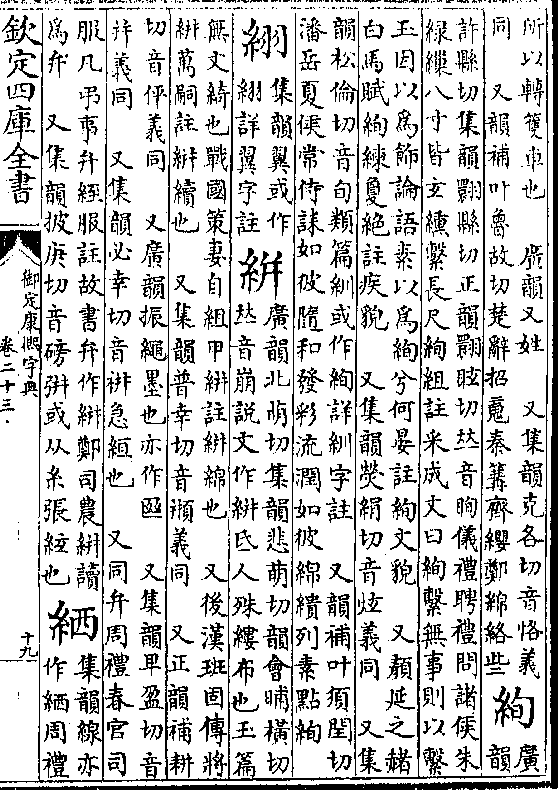 所以轉籆車也　廣韻又姓　又集韻克各切音恪義
同　又韻補叶魯故切楚辭招䰟秦篝齊纓鄭綿絡些
絢
廣
韻
許縣切集韻翾縣切正韻翾眩切𠀤音眴儀禮聘禮問諸侯朱
綠繅八寸皆玄纁繫長尺絢組註采成文曰絢繫無事則以繫
玉因以為飾論語素以為絢兮何晏註絢文貌　又顏延之赭
白馬賦絢練夐絕註疾貌　又集韻熒絹切音炫義同　又集
韻松倫切音旬類篇紃或作絢詳紃字註　又韻補叶須閏切
潘岳夏侯常侍誄如彼隨和發彩流潤如彼綿繢列素點絢
䋚
集韻翼或作
䋚詳翼字註
絣
廣韻北萌切集韻悲萌切韻會晡橫切
𠀤音崩說文作絣氐人殊縷布也玉篇
無文綺也戰國策妻自組甲絣註絣綿也　又後漢班固傳將
絣萬嗣註絣續也　又集韻普幸切音頩義同　又正韻補耕
切音伻義同　又廣韻振繩墨也亦作　又集韻卑盈切音
幷義同　又集韻必幸切音急絙也　又同弁周禮春官司
服凡弔事弁絰服註故書弁作絣鄭司農絣讀
為弁　又集韻披庚切音磅絣或从糸張絃也
絤
集韻線亦
作絤周禮
欽定四庫全書
御定康熙字典
卷二十三
十九